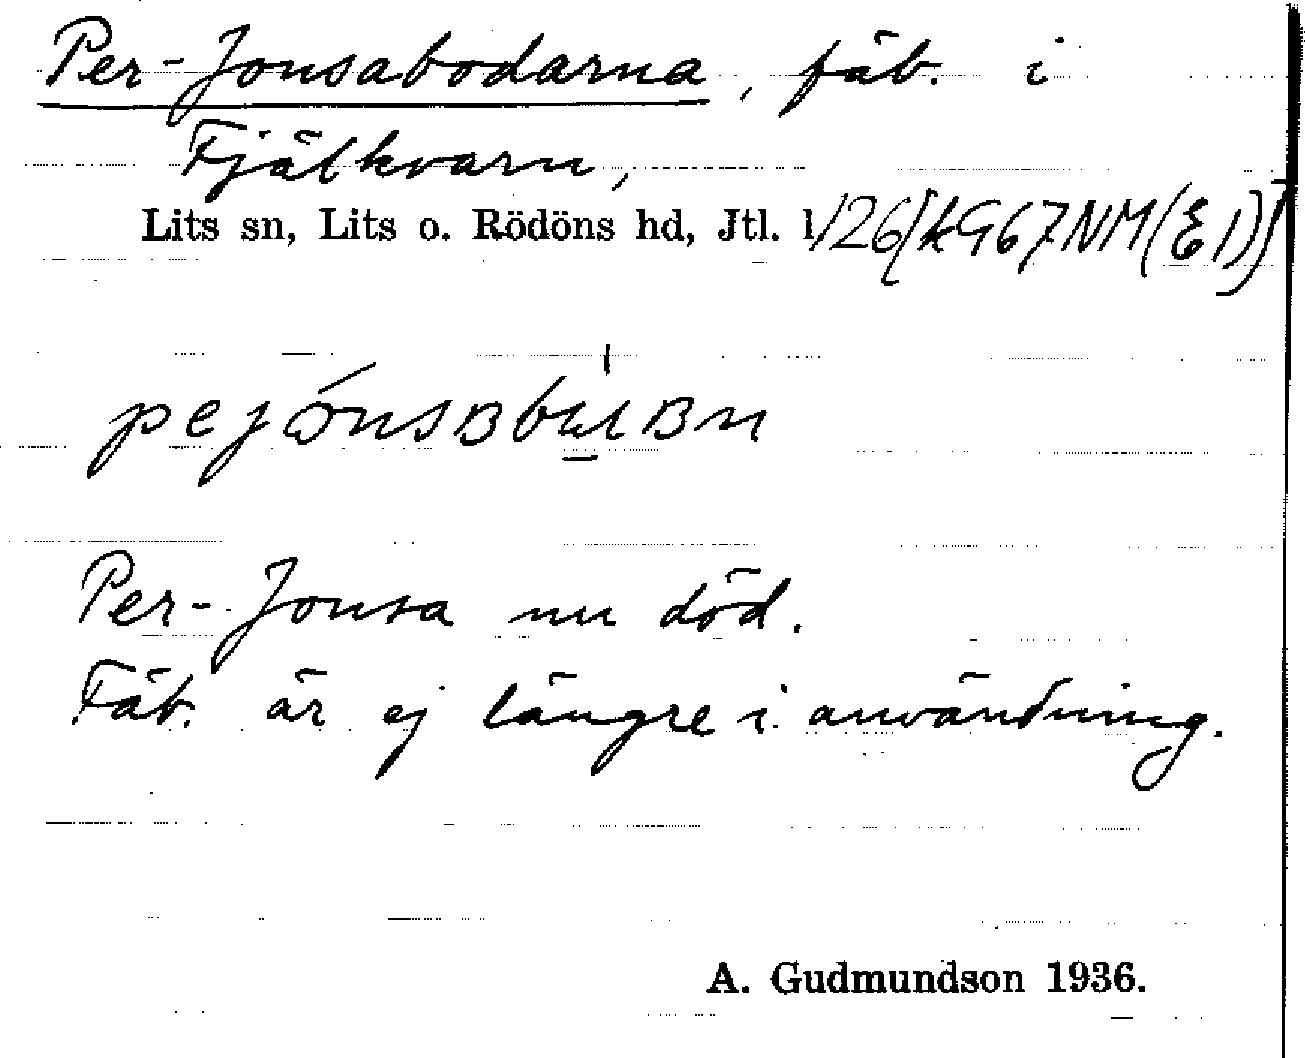 Per-Jonsabodarna, fäb. i
Fjälkvarn,
Lits sn, Lits o. Rödöns hd, Jtl. l/26 [kG67NM(E1)]
Per-Jonsa nu död.
Fäb. är ej längre i användning.
A. Gudmundson 1936.